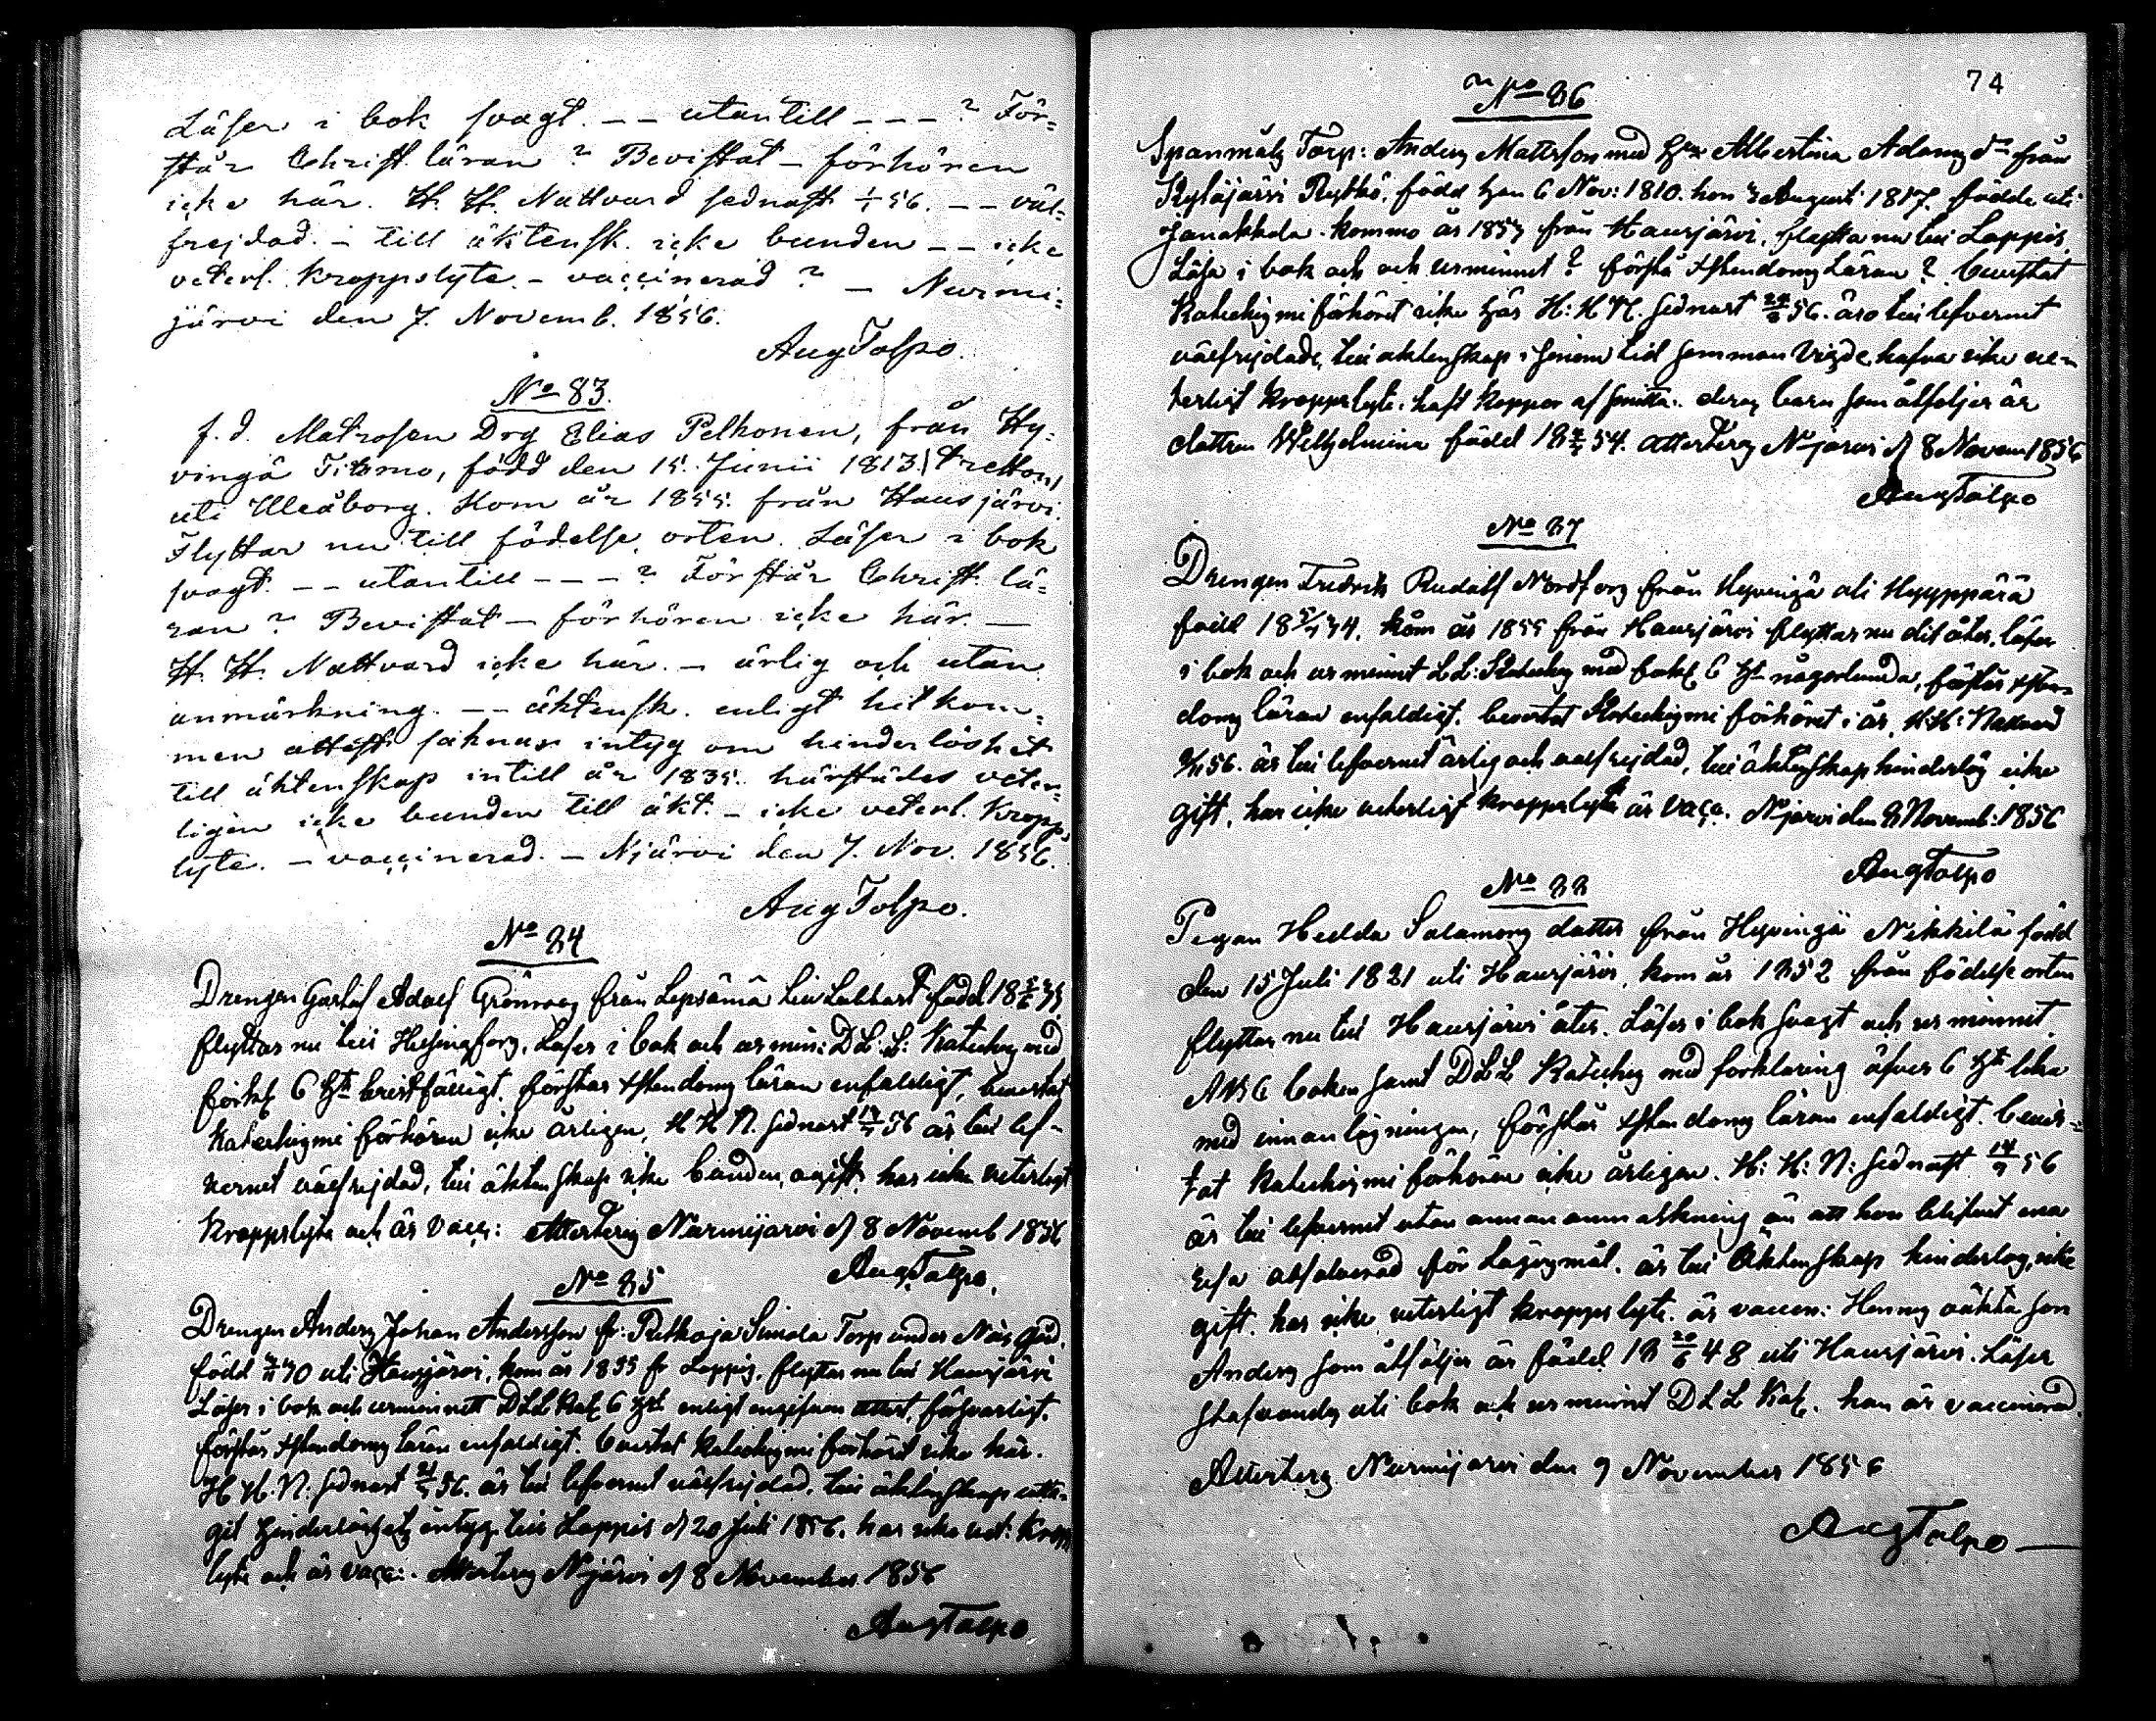 Läser i bok svagt. -- utantill --- ? För=
står Christ. läran ? Bevistat - förhören
icke här. H. H. Nattvard sednast 1/1 56. -- väl=
frejdad. - till äktensk. icke bunden -- icke
veterl. kroppslyte. - vaccinerad ? - Nurmi=
järvi den 7. Novemb. 1856.
Aug Tolpo.
No 83.
f. d. Matrosen Drg Elias Pelhonen, från Hy=
vingä, född den 15. Junii 1813 (tretton)
uti Uleåborg. Kom år 1855. från Hausjärvi.
Flyttar nu till födelse orten. Läser i bok
svagt. -- utantill --- ? Förstår Christ. lä=
ran ? Bevistat - förhören icke här. -
H. H. Nattvard icke här. - ärlig och utan
anmärkning. -- äktensk. enligt hitkom=
men attest saknar intyg om hinderlöshet
till äktenskap intill år 1835. härstädes veter=
ligen icke bunden till äkt. - icke veterl. kropps
lyte. - vaccinerad. - Njärvi den 7. Nov. 1856.
Aug Tolpo.
No 84
Drengen Gustaf Adolf Grönroos från Lepsämä född 18
flyttar nu till Helsingfors, Läser i bok och ur min: D L. L: Kateches med
förkl 6 Hst bristfälligt. förstår Xstendoms läran enfaldigt, bevistat
Katechismi förhören icke årligen, H H N. sednast 56 är till lef-
vernet välfrejdad, till äktenskap icke bunden, ogift, har icke veterligt
kroppslyte och är vacc: Attesteras Nurmijärvi d 8 Novemb 1856
Aug Tolpo.
No 85
Drengen Anders Johan Andersson fr. Simola Torp under Näs Gård.
född uti Hausjärvi, kom år 1855 fr Loppis, flyttar nu till Hausjärvi
Läser i bok och ur minnet D L L Kat 6 Hst enligt angifven attest, försvarligt.
förstår Xstendoms läran enfaldigt. bevistat Katechismi förhöret icke här.
H. H. N: sednast 56. är till lefvernet välfrejdad, till äktenskap utta-
git hinderlöshets intyg till Loppis d 20 Juli 1856. har icke vet: kropps
lyte och är vacc:. Attesteras Njärvi d 8 November 1856
Aug Tolpo
74
No 86
Spanmåls Torp: Anders Mattsson med Hu Albertina Adams dr från
Kyläjärvi född han 6 Nov: 1810. hon Augusti 1817. födde uti
Janakkala. kommo år från Hausjärvi, flytta nu till Loppis,
Läsa i bok och och ur minnet ? förstå Xstendoms Läran ? bevistat
Katechismi förhöret icke här H: H N. sednast 56. äro till lefvernet
välfrejdade, till äktenskap i sinom tid samman vigde, hafva icke ve-
terligt kroppslyte. haft koppor af smitta. deras barn som åtföljer är
dottren Wilhelmina född 18 54. Attesteras Njärvi d 8 Novem 1856
Aug Tolpo
No 87
Drengen Fredrik Rudolf Nordfors från Hyvingä uti Hyyppärä
född 18 34. kom år 1855 från Hausjärvi flyttar nu dit åter. läser
i bok och ur minnet L L: Kateches med förkl 6 Hst någorlunda, förstår Xsten-
doms läran enfaldigt. bevistat Katechismi förhöret i år. H: H: Nattvard
56. är till lefvernet ärlig och välfrejdad, till äktenskap hinderlös icke
gift, har icke veterligt kroppslyte är vacc. Njärvi den 8 Novemb: 1856
Aug Tolpo
No 88
Pigan Hedda Salomons dotter från Hyvingä Nikkilä född
den 15 Juli 1821 uti Hausjärvi, kom år 1852 från födelse orten
flyttar nu till Hausjärvi åter. Läser i bok svagt och ur minnet.
A B C boken samt D L L Kateches med förklaring öfver 6 Hst lika
med innanläsningen, förstår Xstendoms läran enfaldigt. bevis=
tat Katechismi förhören icke årligen. H: H: N: sednast 56
är till lefvernet utan annan anmärkning än att hon blifvit en
resa absolverad för Lägersmål. är till Äktenskap hinderlös, icke
gift. har icke veterligt kropps lyte. är vaccin: Hennes oäkta son
Anders som åtföljer är född 18 20/6 48 uti Hausjärvi. Läser
stafvandes uti bok och ur minnet D L L Kat. han är vaccinerad.
Attesteras Nurmijärvi den 9 November 1856
Aug Tolpo